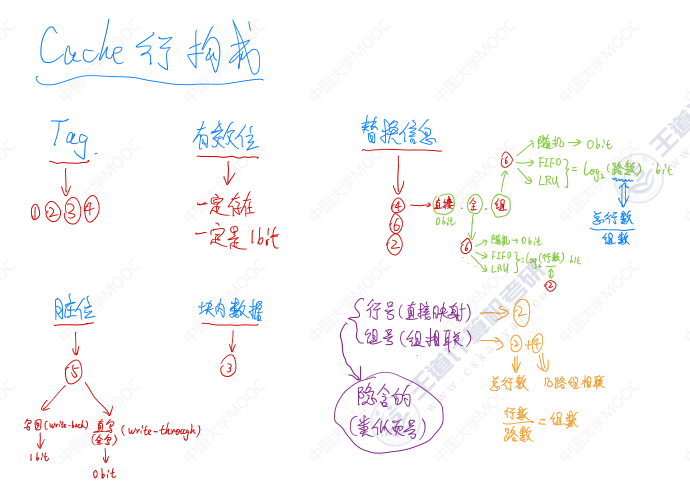 Cache 行构成
Tag
① ② ③ ④
有效位
一定存在
一定是1bit
替换信息
④
⑥
②
直接、全、组
0bit
⑥
随机→0bit
FIFO
LRU
=log₂(路数) bit
总行数
组数
⑥
随机→0bit
FIFO
LRU
=log₂(行数) bit
②
脏位
⑤
写回(write-back)
1bit
直写
(全写)
(write-through)
0bit
块内数据
③
行号(直接映射)→②
组号(组相联)→②+④
总行数 几路组相联
行数
路数
=组数
隐含的
(类似页号)
王道计算机考研
中国大学MOOC